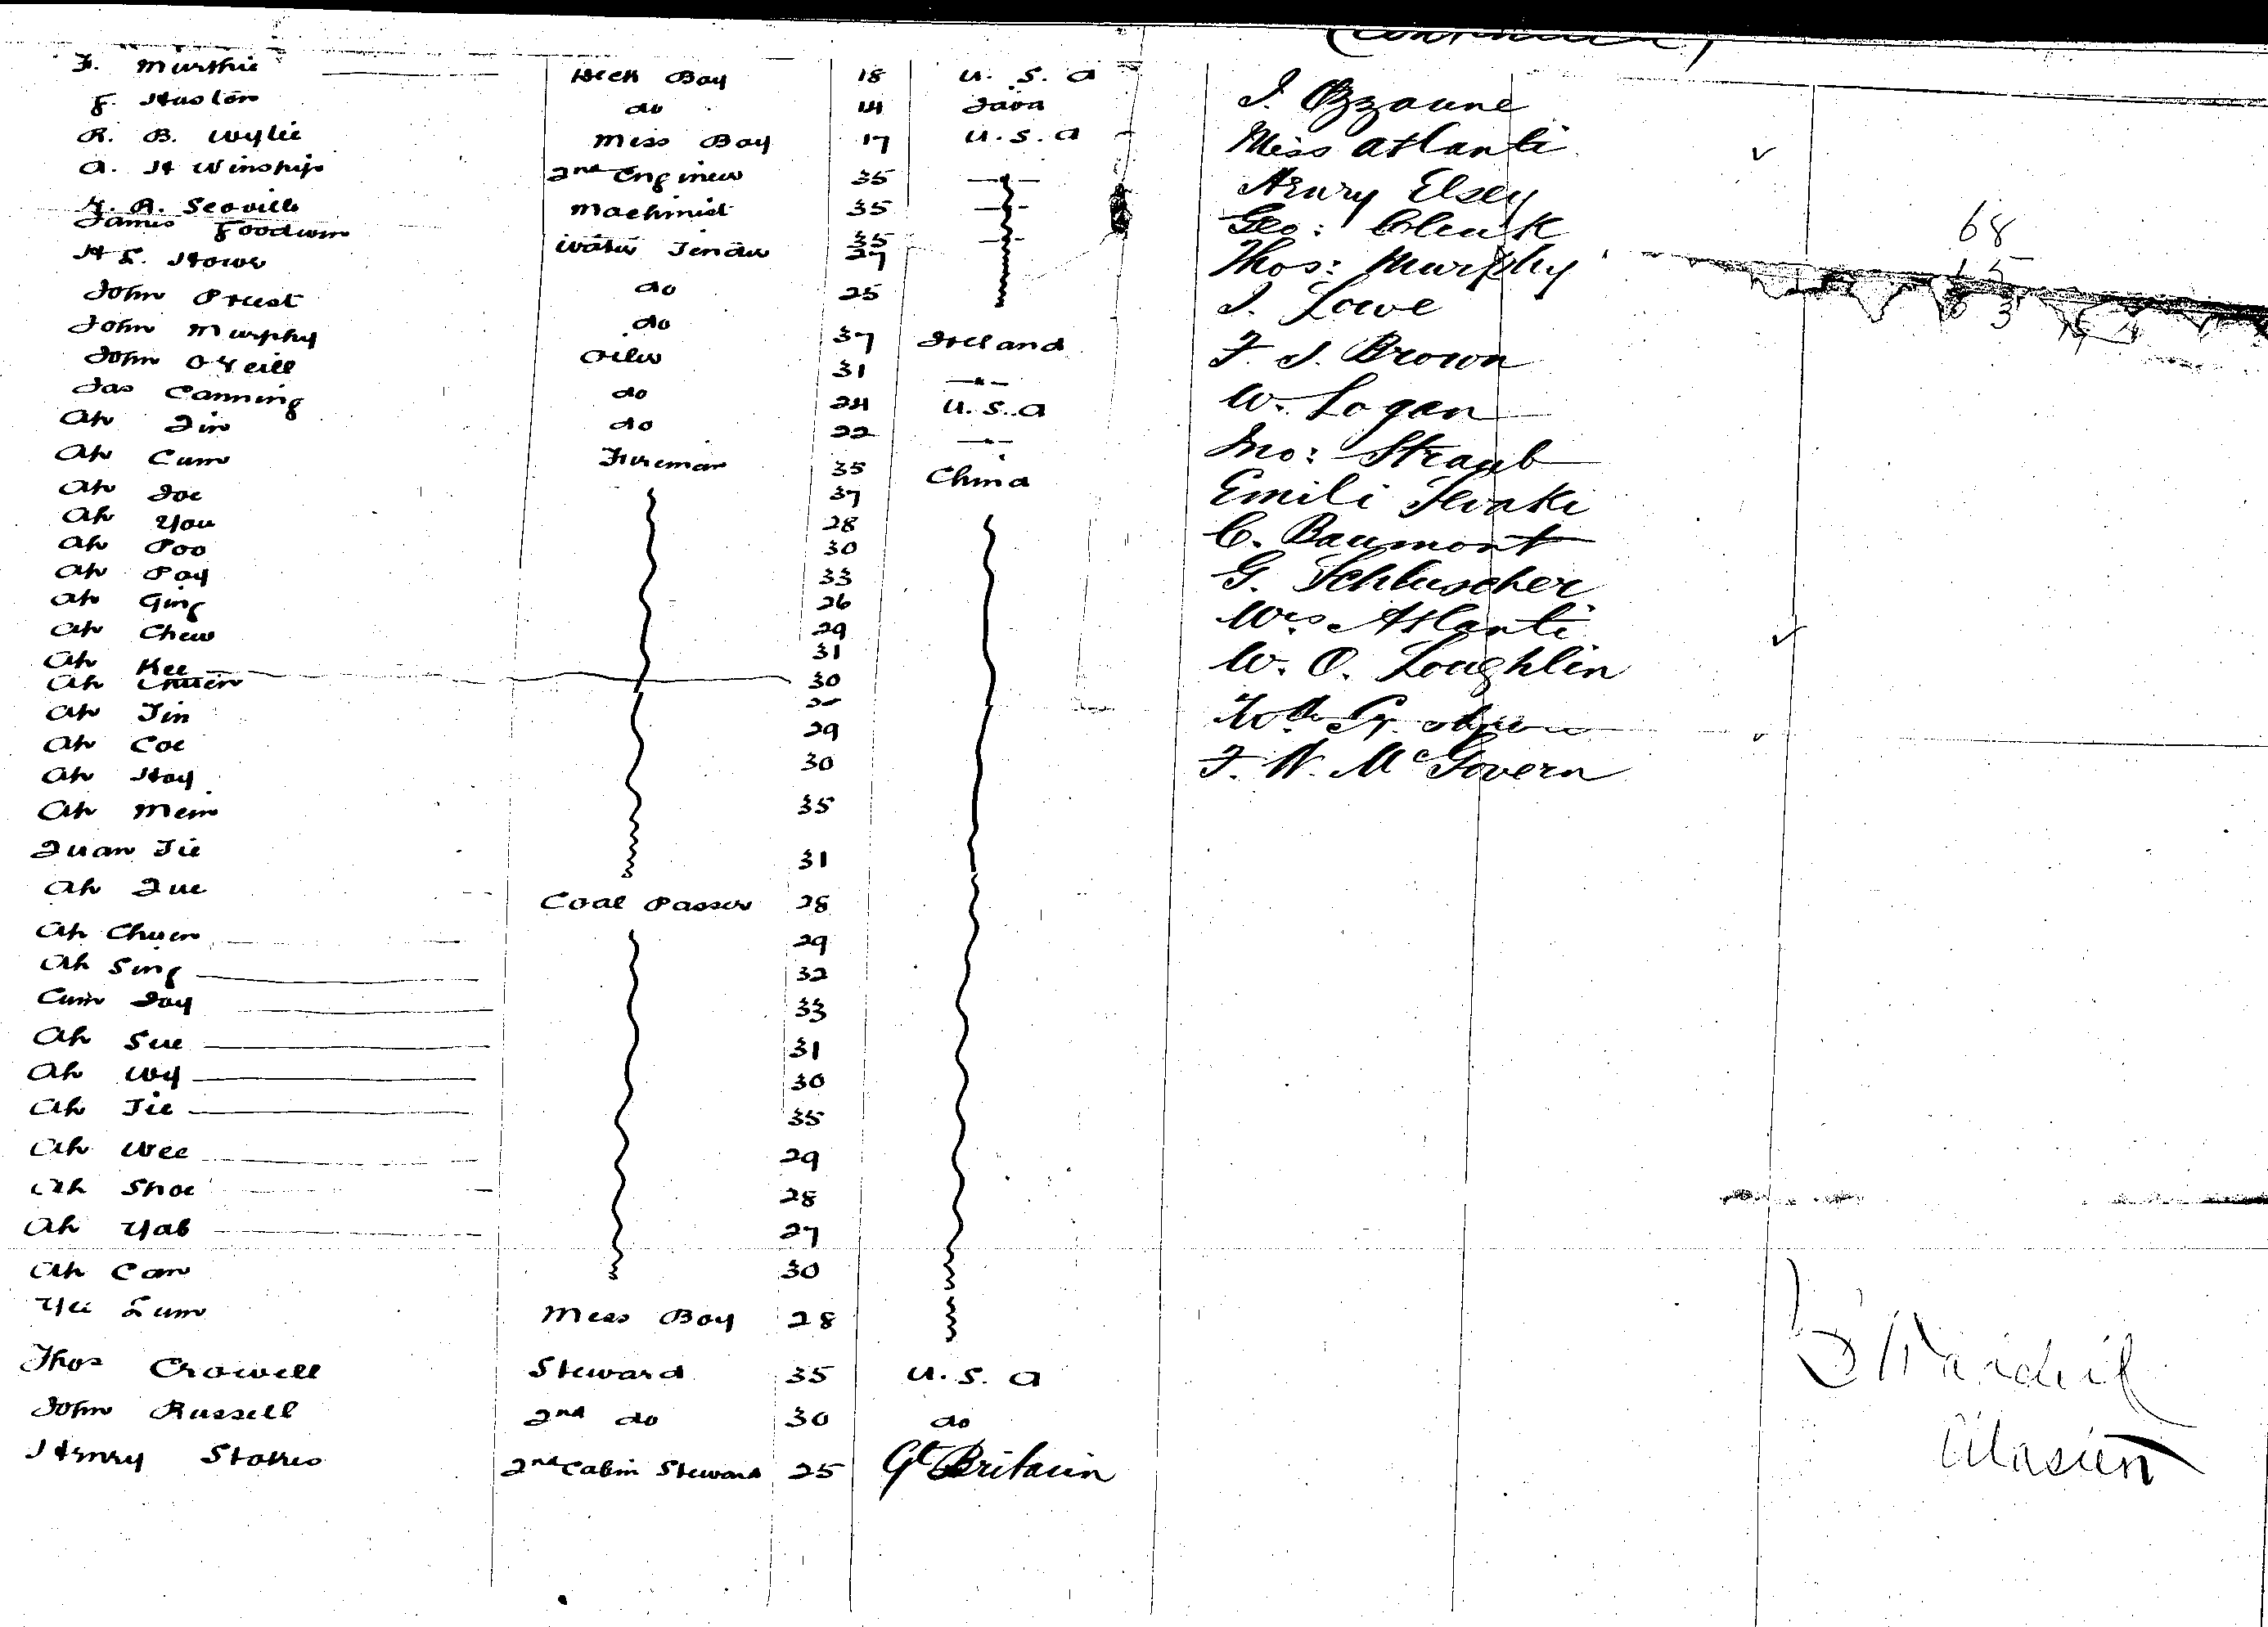 (Continued)
F. Murthie Deck Boy 18 U. S. A
F. Huston do 14 Java
R. B. Wylie Mess Boy 17 U. S. A
A. H Winship 2nd Engineer 35 —"—
G. R. Scoville Machinist 35 —"—
James Goodwin Water Tender 35 —"—
H L. Howe do 27
John Priest do 25
John Murphy Oiler 37 Ireland
John O'Neill do 31 —"—
Jas Canning do 24 U. S. A
Ah Jin Fireman 22 —"—
Ah Cum 35 China
Ah Joe 37
Ah You 28
Ah Poo 30
Ah Poy 33
Ah Ging 26
Ah Chew 29
Ah Kee 31
Ah Chuen 30
Ah Tin
Ah Coe 29
Ah Hoy 30
Ah Mem 35
Quan Tie 31
Ah Que Coal Passer 28
Ah Chuen 29
Ah Sing 32
Cum Joy 33
Ah Sue 31
Ah Wy 30
Ah Tie 35
Ah Wee 29
Ah Shoe 28
Ah Yab 27
Ah Can 30
Yee Lum Mess Boy 28
Thos Crowell Steward 35 U. S. A
John Russell 2nd do 30 do
Henry Stokes 2nd Cabin Steward 25 Gt Britain
J. Ozzanne
Miss Atlanti
Henry Elsey
Geo: Clenk
Thos: Murphy
J. Lowe
F. J. Brown
W. Logan
Jno: Straub
Emili
C. Baumont
G. Schluscher
Mrs Atlanti
W. O. Loughlin
F. W. McGovern
68
15